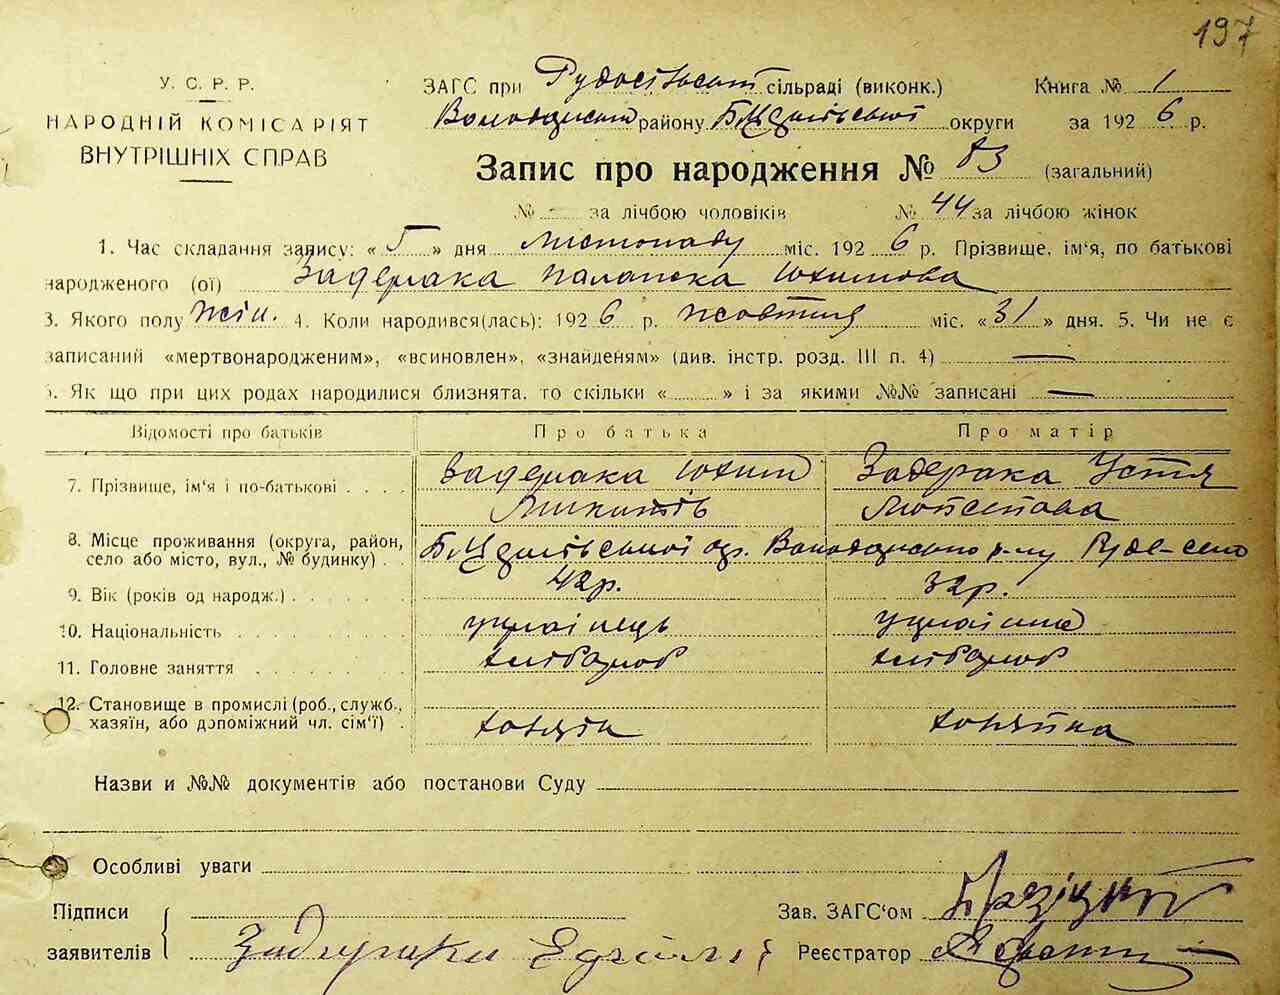 197
У. С. Р. Р.
НАРОДНІЙ КОМІСАРІЯТ
ВНУТРІШНІХ СПРАВ
ЗАГС при Рудосільські сільраді (виконк.) Книга № 1
Володарськ району Б-Церківської округи за 1926 р.
Запис про народження № 83 (загальний)
№ — за лічбою чоловіків № 44 за лічбою жінок
1. Час складання запису: «5» дня листопаду міс. 1926 р. Прізвище, ім'я, по батькові
народженого (ої) Задерака Палажка Юхимова
3. Якого полу жін. 4. Коли народився(лась): 1926 р. жовтня міс. «31» дня. 5. Чи не є
записаний «мертвонародженим», «всиновлен», «знайденям» (див. інстр. розд. III п. 4) —
Як що при цих родах народилися близнята, то скільки « » і за якими №№ записані —
Відомості про батьків Про батька Про матір
7. Прізвище, ім'я і по-батькові Задерака Юхим Задерака Устя
Микитів
8. Місце проживання (округа, район, село або місто, вул., № будинку) Б-Церківської ок. Володарського р-ну Руде-село
9. Вік (років од народж.) 42р. 32р.
10. Національність українець українка
11. Головне заняття хлібороб хлібороб
12. Становище в промислі (роб., служб., хазяїн, або допоміжний чл. сім'ї) хазяїн хазяйка
Назви и №№ документів або постанови Суду
Особливі уваги
Підписи
заявителів Задерака
Зав. ЗАГС'ом
Реєстратор